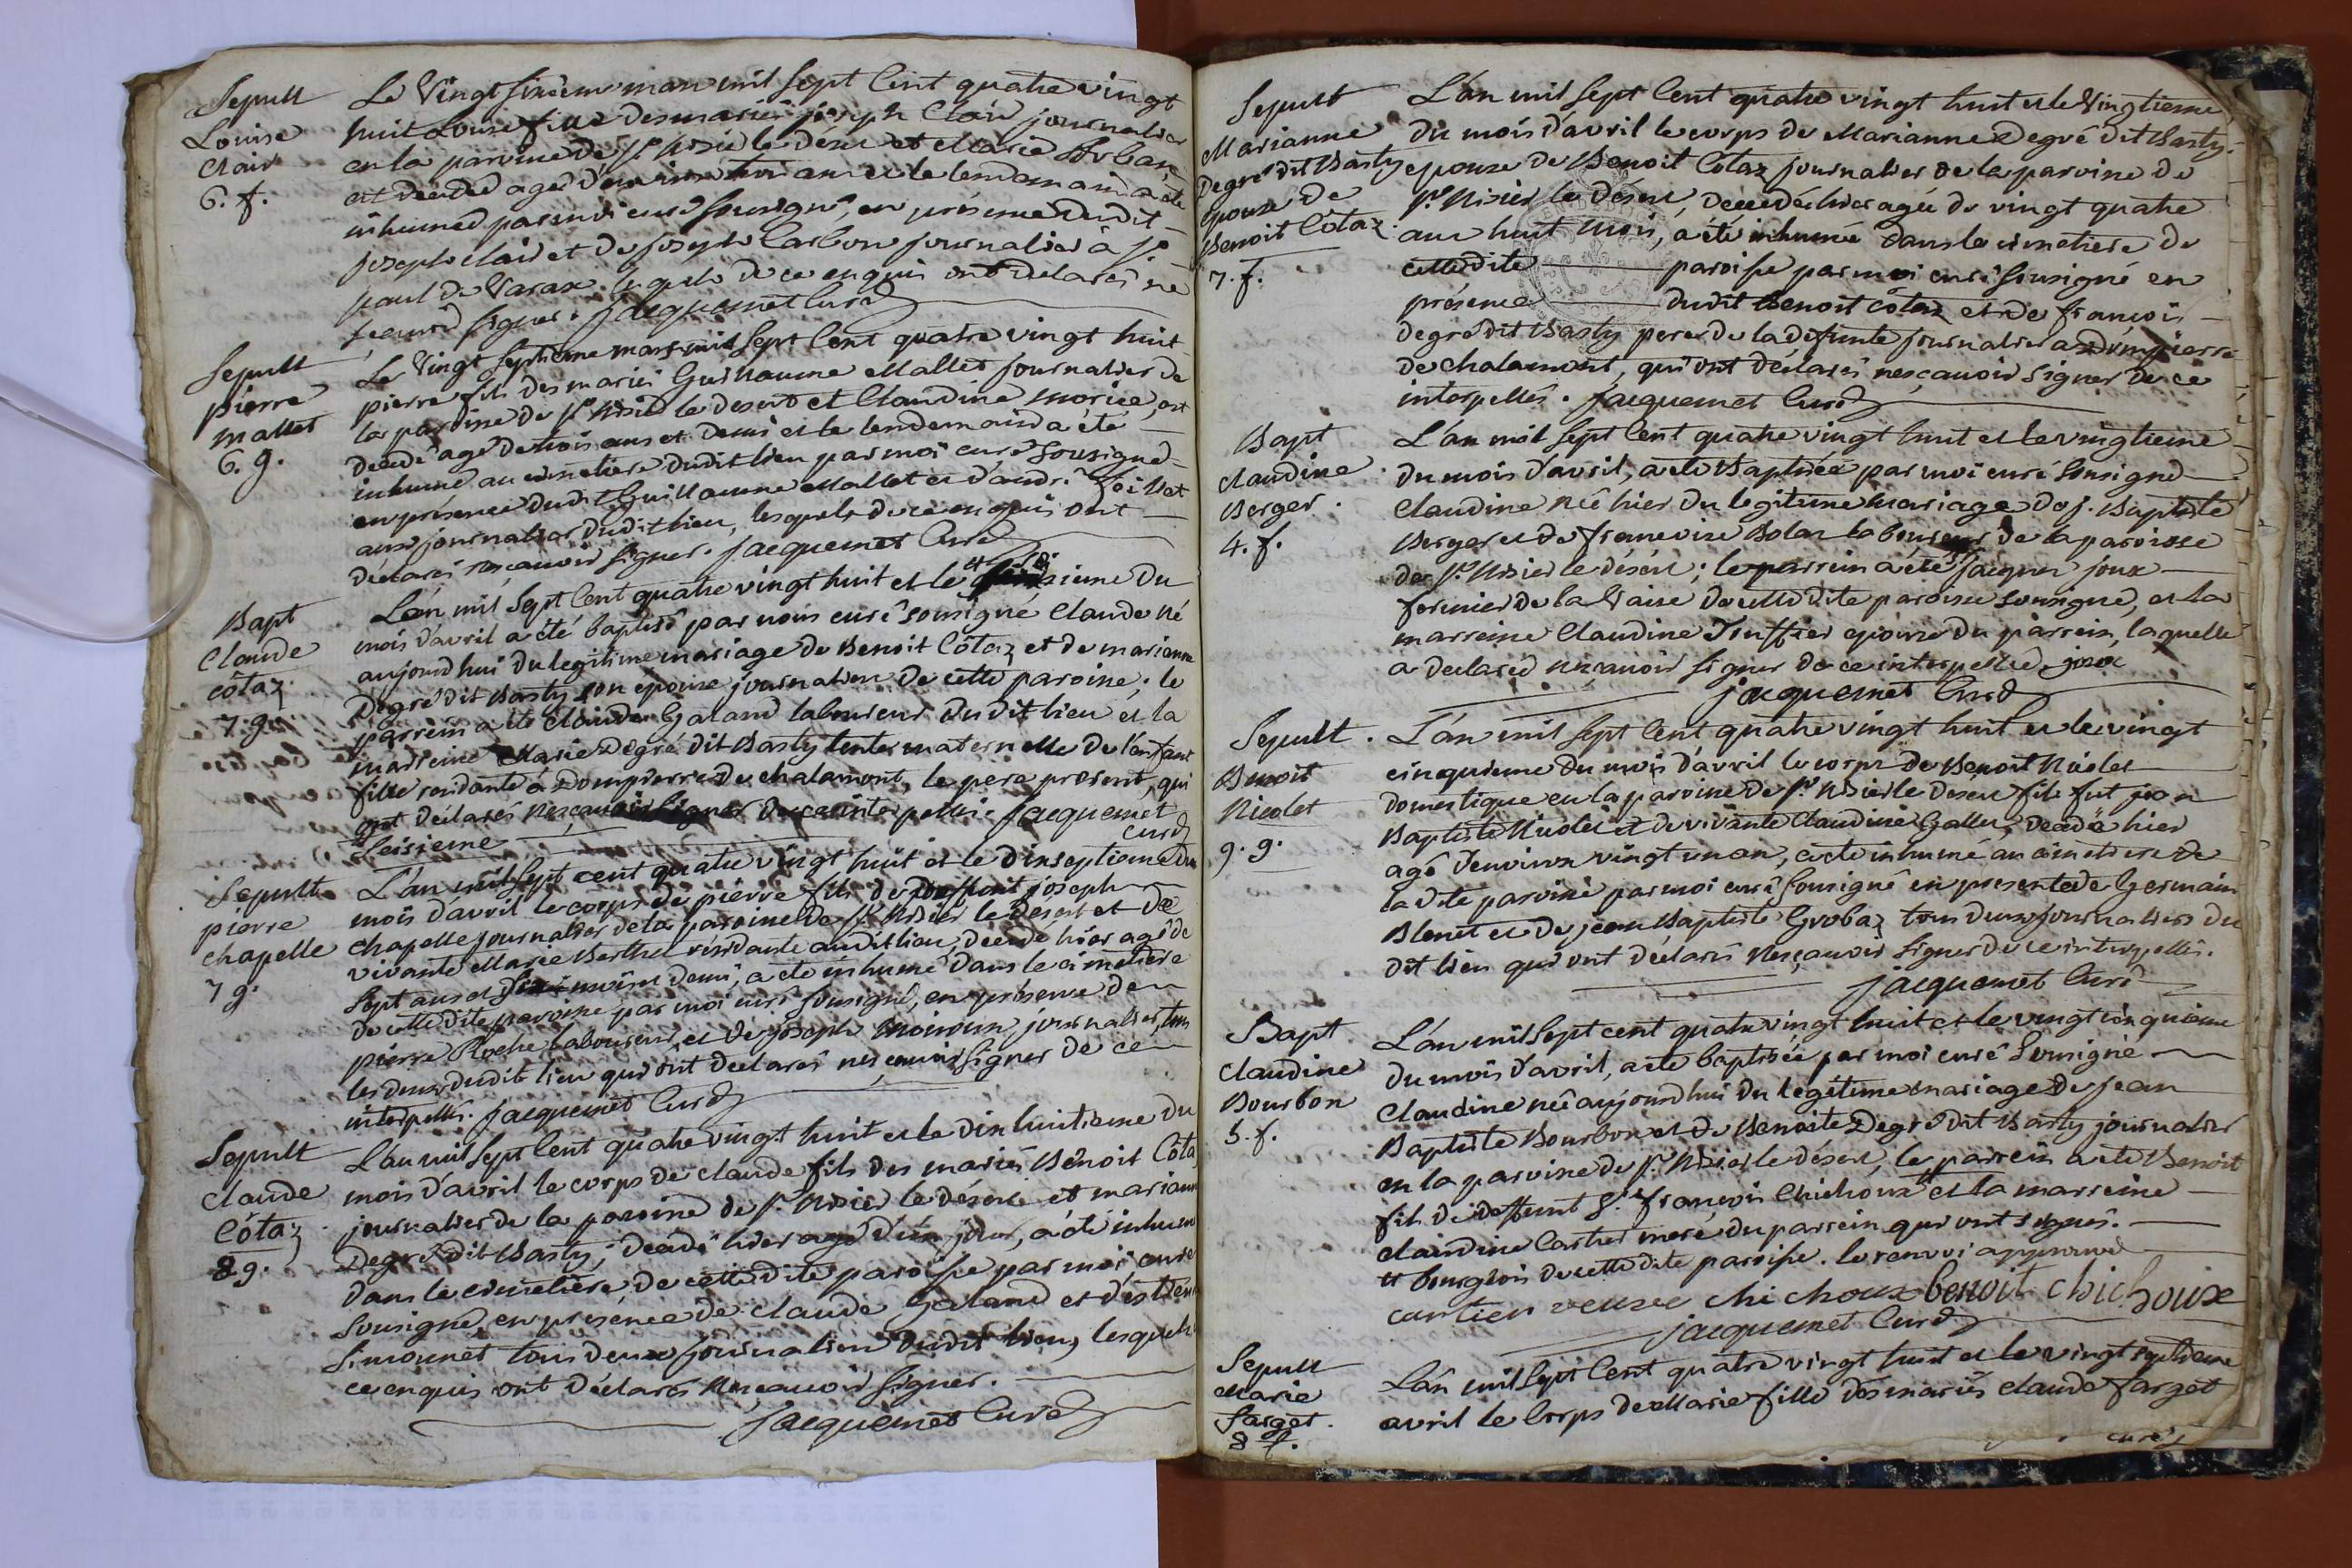 Sepult
Louise
Clair
6. f.
Le Vingt sixieme mars mil sept Cent quatre vingt
huit Louise fille des mariés joseph Clair journalier
en la paroisse de St Nisier le désert et Marie
est decedé agé d'environ trois ans et le lendemain a été
inhumée par moi curé soussigné, en présence dudit
joseph clair et de joseph Carbon journalier à St
paul de Varax lesquels de ce enquis ont declarés ne
scavoir signer. Jacquemet Curé
Sepult
pierre
mallet
6. g.
Le Vingt septieme mars mil sept Cent quatre vingt huit
pierre fils des mariés Guillaume Mallet journalier de
la paroisse de St Nisier le desert et Claudine morice, est
decedé agé de trois ans et demi et le lendemain a été
inhumé au cimetiere dudit lieu par moi curé sousigné
en présence dudit Guillaume Mallet et d'andré
aussi journalier dudit lieu, lesquels de ce enquis ont
déclarés nesçavoir signer. Jacquemet Curé
Bapt
Claude
côtaz
7. g.
L'an mil sept Cent quatre vingt huit et le du
mois d'avril a été baptisé par nous curé sousigné Claude né
aujourd'hui du legitime mariage de Benoit Côtaz et de marianne
Degré dit Basty son epouse journalier de cette paroisse; le
parrein a été Claude Galand laboureur dudit lieu et la
marreine Marie Degré dit Basty tente maternelle de l'enfant
fille residante à Dompierre de chalamont, le pere présent, qui
ont déclarés nesçavoir signer de ce interpellés. Jacquemet
Seisieme curé
Sepult
pierre
chapelle
7 g.
L'an mil sept cent quatre vingt huit et le dixseptieme du
mois d'avril le corps de pierre fils de deffunt joseph
Chapelle journalier de la paroisse de St Nisier le désert et de
vivante Marie Berthet résidante audit lieu, decedé hier agé de
sept ans et demi, a été inhumé dans le cimetiere
de cette dite paroisse par moi curé sousigné, en présence de
pierre Roche laboureur, et de joseph moiroux, journalier, tous
les deux dudit lieu qui ont declarés nesçavoir signer de ce
interpellés. Jacquemet Curé
Sepult
Claude
Côtaz
8 g.
L'an mil sept Cent quatre vingt huit et le dix huitieme du
mois d'avril le corps de claude fils des mariés Benoit Côtaz
journalier de la paroisse de St Nisier le désert et marianne
Degré dit Basty; decedé hier agé d'un jour, a été inhumé
dans le cimetiere de cette dite paroisse par moi curé
sousigné, en présence de claude Galand et d'estienne
simonnet tous deux journaliers dudit lieu, lesquels
ce enquis ont déclarés nesçavoir signer.
Jacquemet Curé
Sepult
Marianne
Degré dit Basty
epouse de
Benoit Côtaz.
7. f.
L'an mil sept Cent quatre vingt huit et le vingtieme
du mois d'avril le corps de Marianne Degré dit Basty
epouse de Benoit Côtaz journalier de la paroisse de
St Nisier le désert, decedée hier agée de vingt quatre
ans huit mois, a été inhumée dans le cimetiere de
cette dite paroisse par moi curé sousigné en
présence dudit Benoit Côtaz et de françois
degré dit Basty pere de la defunte journalier a dompierre
de chalamont, qui ont déclarés nesçavoir signer de ce
interpellés. Jacquemet Curé
Bapt
Claudine
Berger.
4. f.
L'an mil sept Cent quatre vingt huit et le vingtieme
du mois d'avril, a été baptisée par moi curé sousigné
Claudine née hier du legitime mariage de j. Baptiste
Berger et de francoise Bolaz laboureur de la paroisse
de St Nisier le désert; le parrein a été Jacques joux
fermier de la Vaise de cette dite paroisse sousigné, et la
marreine Claudine epouse du parrein, laquelle
a declaré nesçavoir signer de ce interpellé. joux
jacquemet Curé
Sepult.
Benoit
Nicolet
9. g.
L'an mil sept Cent quatre vingt huit et le vingt
cinquieme du mois d'avril le corps de Benoit Nicolet
domestique en la paroisse de St Nisier le desert fils fut jean
Baptiste Nicolet et de vivante Claudine Gallet, decedé hier
agé d'environ vingt un an, a été inhumé au cimetiere de
la dite paroisse par moi curé sousigné en presence de Germain
Blenet et de jean Baptiste Grobaz tous deux journaliers du
dit lieu qui ont déclarés nesçavoir signer de ce interpellés.
jacquemet Curé
Bapt.
Claudine
Bourbon
5. f.
L'an mil sept cent quatre vingt huit et le vingt cinquieme
du mois d'avril, a été baptisée par moi curé sousigné
Claudine née aujourd'hui du legitime mariage de jean
Baptiste Bourbon et de Benoite Degré dit Basty journalier
en la paroisse de St Nisier le désert, le parrein a été Benoit
fils de deffunt Sr. françois Chichoux et la marreine
claudine Cartier mere du parrein qui ont signés.
bourgeois de cette dite paroisse. le renvoi approuvé
cartier veuve chichoux benoit Chichoux
jacquemet Curé
Sepult
Marie
farget.
8 f.
L'an mil sept Cent quatre vingt huit et le vingt septieme
avril le Corps de Marie fille des mariés claude farget
curé